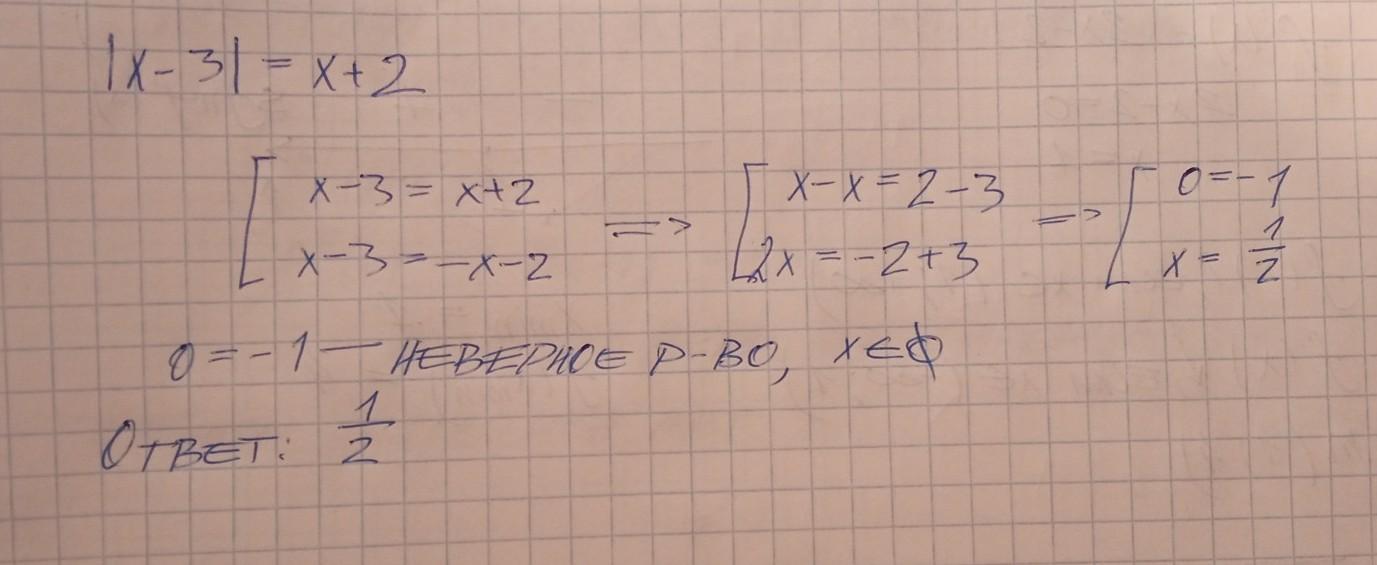 |x-3| = x+2
[ x-3 = x+2 => [ x-x = 2-3 => [ 0 = -1
[ x-3 = -x-2 [ 2x = -2+3 [ x = 1/2
0 = -1 — НЕВЕРНОЕ Р-ВО, x∈∅
ОТВЕТ: 1/2